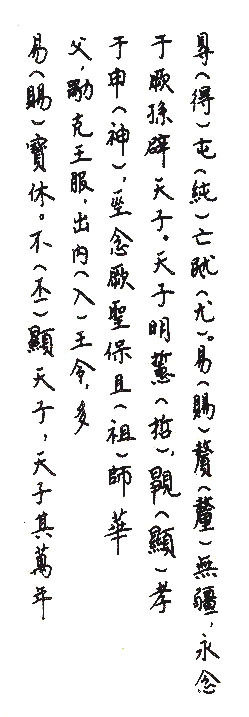 㝵(得)屯(純)亡敃(尤)。易(賜)贅(釐)無疆，永念
于厥孫辟天子。天子明悊(哲)，覭(顯)孝
于申(神)，巠念厥聖保且(祖)師華
父，克王服，出内(入)王令，多
易(賜)寶休。不(丕)顯天子，天子其萬年